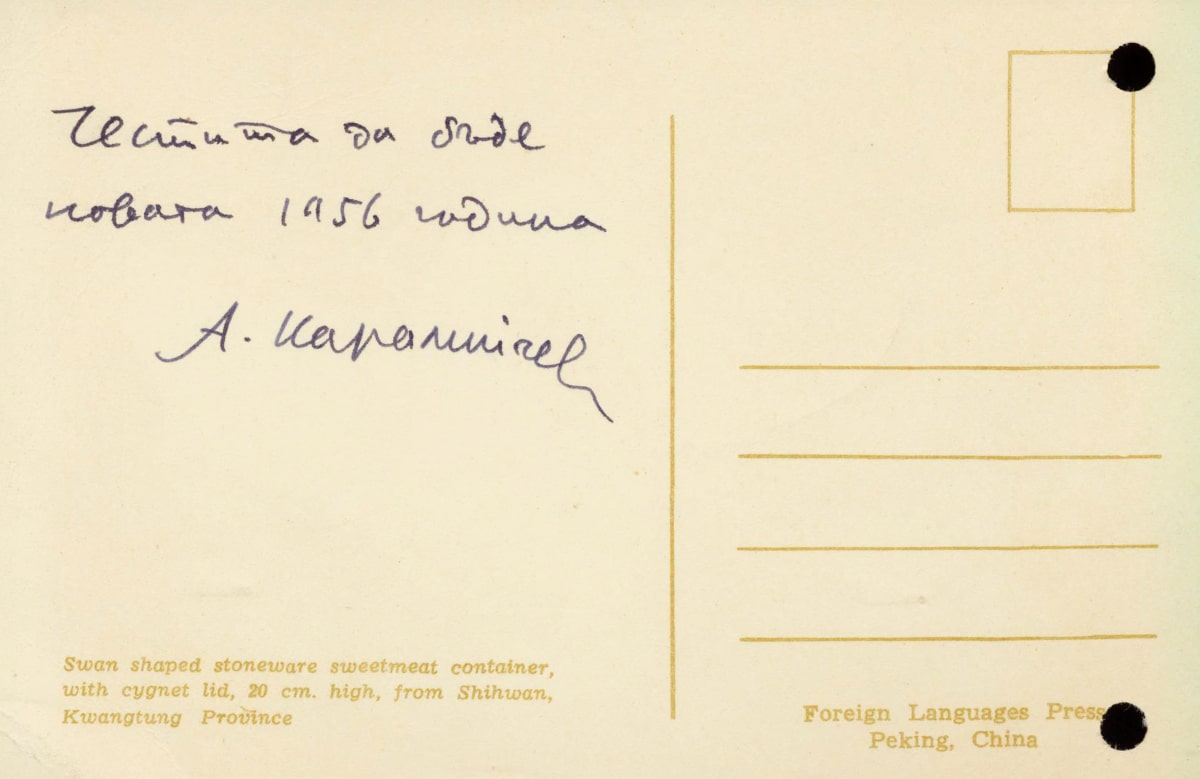 Честита да бъде
новата 1956 година
А. Каралийчев
Swan shaped stoneware sweetmeat container,
with cygnet lid, 20 cm. high, from Shihwan,
Kwangtung Province
Foreign Languages Press
Peking, China